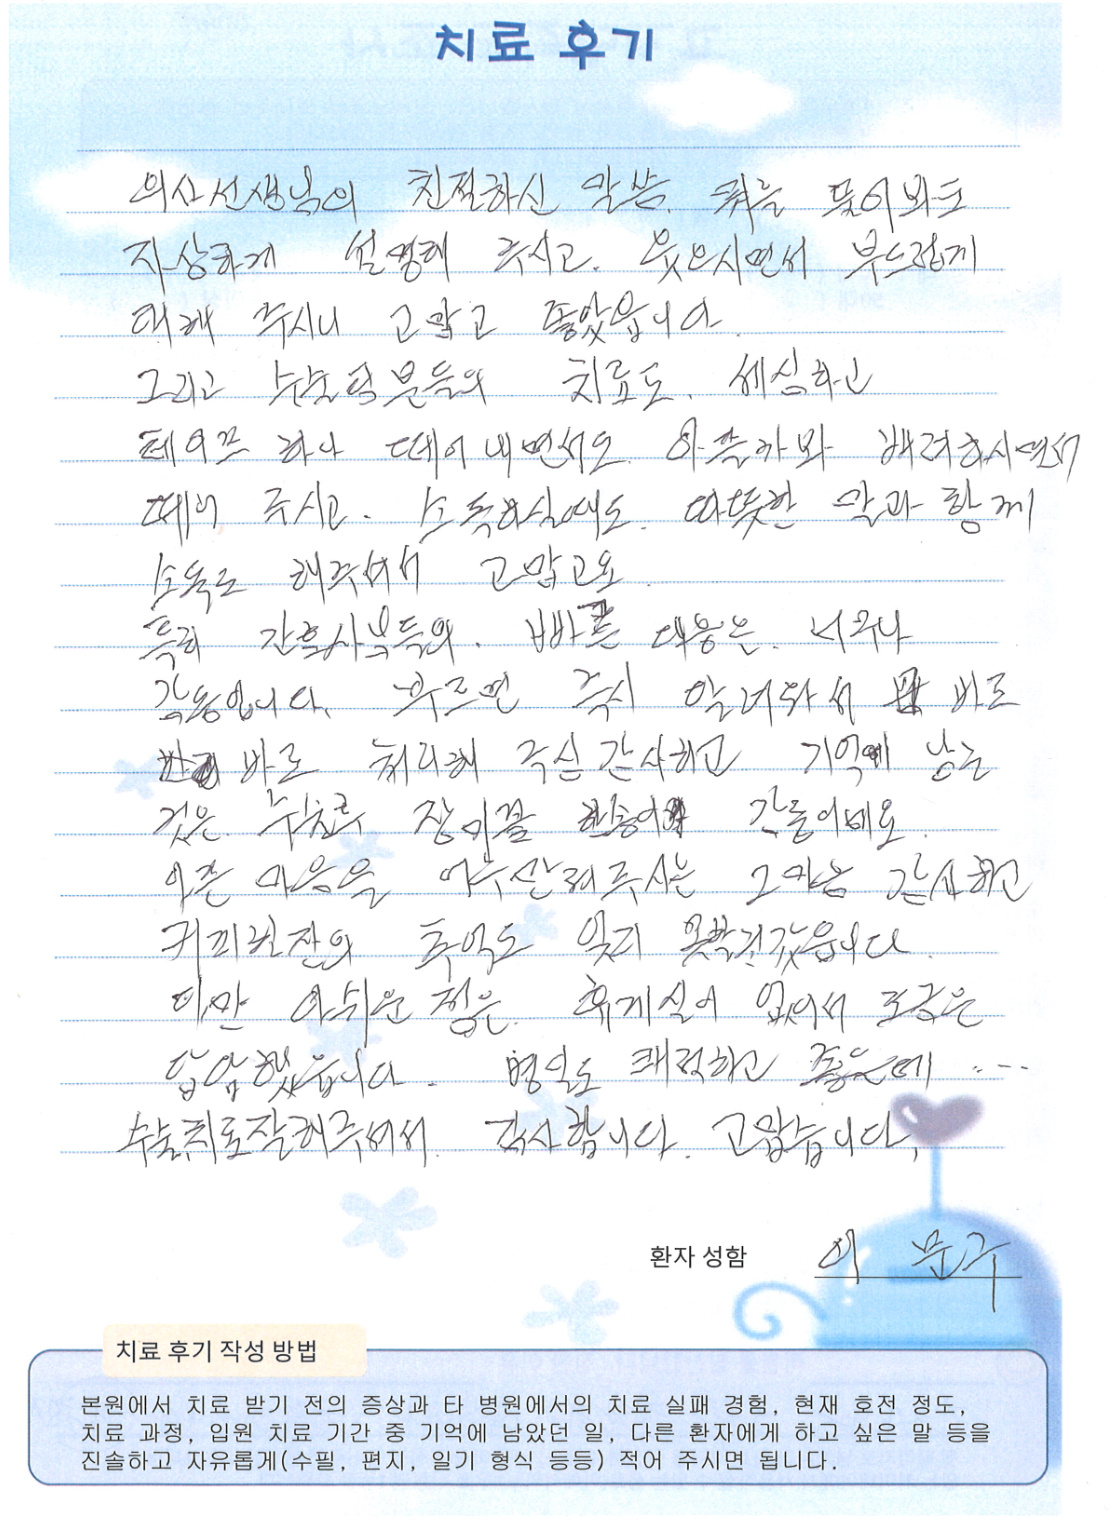 치료 후기
의사선생님의 친절하신 말씀. 뭐를 물어봐도
자상하게 설명해 주시고. 웃으시면서 부드럽게
대해 주시니 고맙고 좋았읍니다.
그리고 분들의 치료도. 세심하고
테이프 하나 떼어내면서도. 아플까봐 배려하시면서
떼어 주시고. 소독하실때도. 따뜻한 말과 함께
소독도 해주셔서 고맙고요.
특히 간호사분들의. 빠른 대응은. 너무나
감동입니다. 부르면 즉시 달려와서 바로
바로 처리해 주심 감사하고 기억에 남는
것은. 감동이네요.
아픈 마음을 그 마음 감사하고
커피한잔의 추억도 잊지 못할것같읍니다.
다만 아쉬운 점은. 휴게실이 없어서 조금은
답답했읍니다. 병실도 쾌적하고 좋은데 ...
수술,치료잘해주셔서. 감사합니다. 고맙습니다.
환자 성함 이 문구
치료 후기 작성 방법
본원에서 치료 받기 전의 증상과 타 병원에서의 치료 실패 경험, 현재 호전 정도,
치료 과정, 입원 치료 기간 중 기억에 남았던 일, 다른 환자에게 하고 싶은 말 등을
진솔하고 자유롭게(수필, 편지, 일기 형식 등등) 적어 주시면 됩니다.